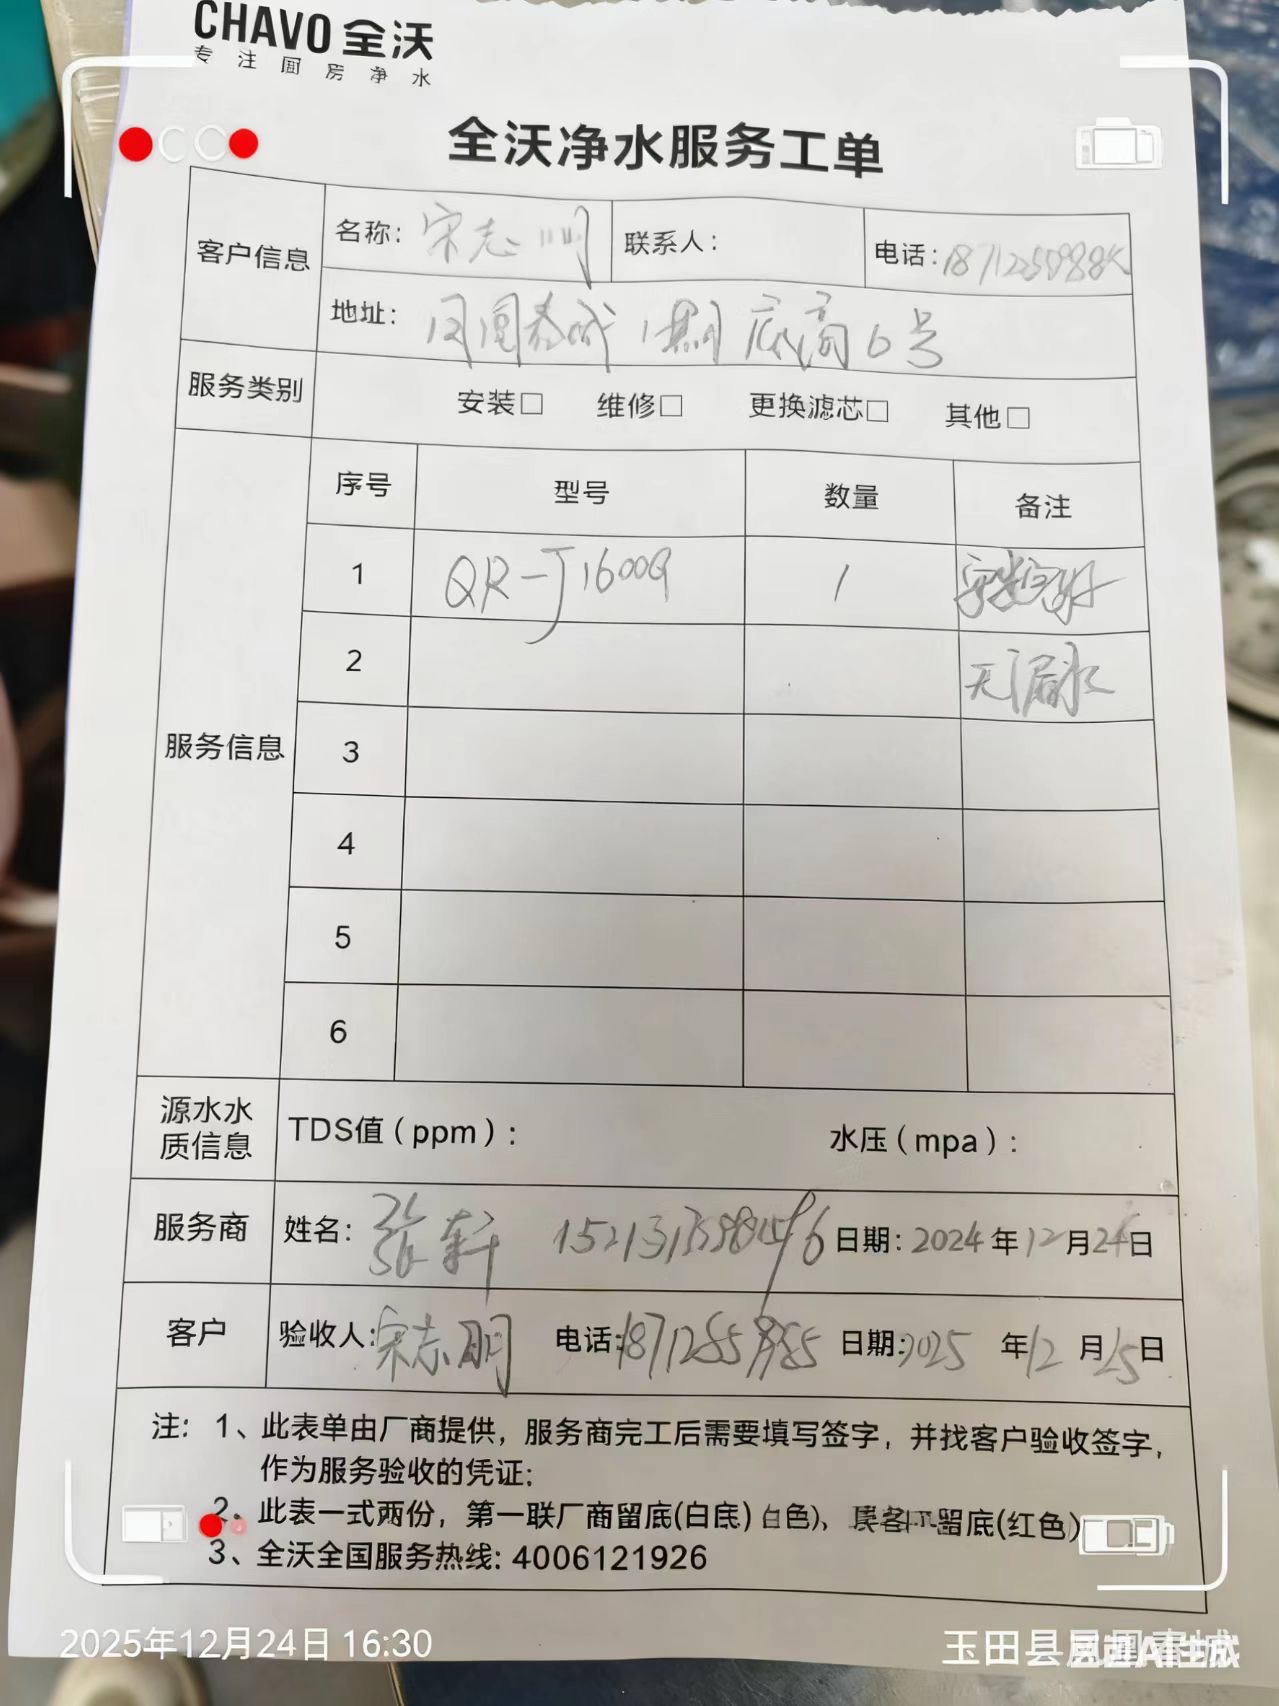 CHAVO 全沃
专注厨房净水
全沃净水服务工单
客户信息 名称: 宋志明 联系人: 电话:
地址: 底商6号
服务类别 安装□ 维修□ 更换滤芯□ 其他□
服务信息 序号 型号 数量 备注
1 QR-J1600G 1
2 无漏水
3
4
5
6
源水水质信息 TDS值(ppm): 水压(mpa):
服务商 姓名: 张轩 日期: 2024年12月24日
客户 验收人: 宋志明 电话: 日期: 2025年12月25日
注: 1、此表单由厂商提供，服务商完工后需要填写签字，并找客户验收签字，
作为服务验收的凭证;
2、此表一式两份，第一联厂商留底(白底)白色)、 留底(红色)
3、全沃全国服务热线: 4006121926
2025年12月24日 16:30
玉田县